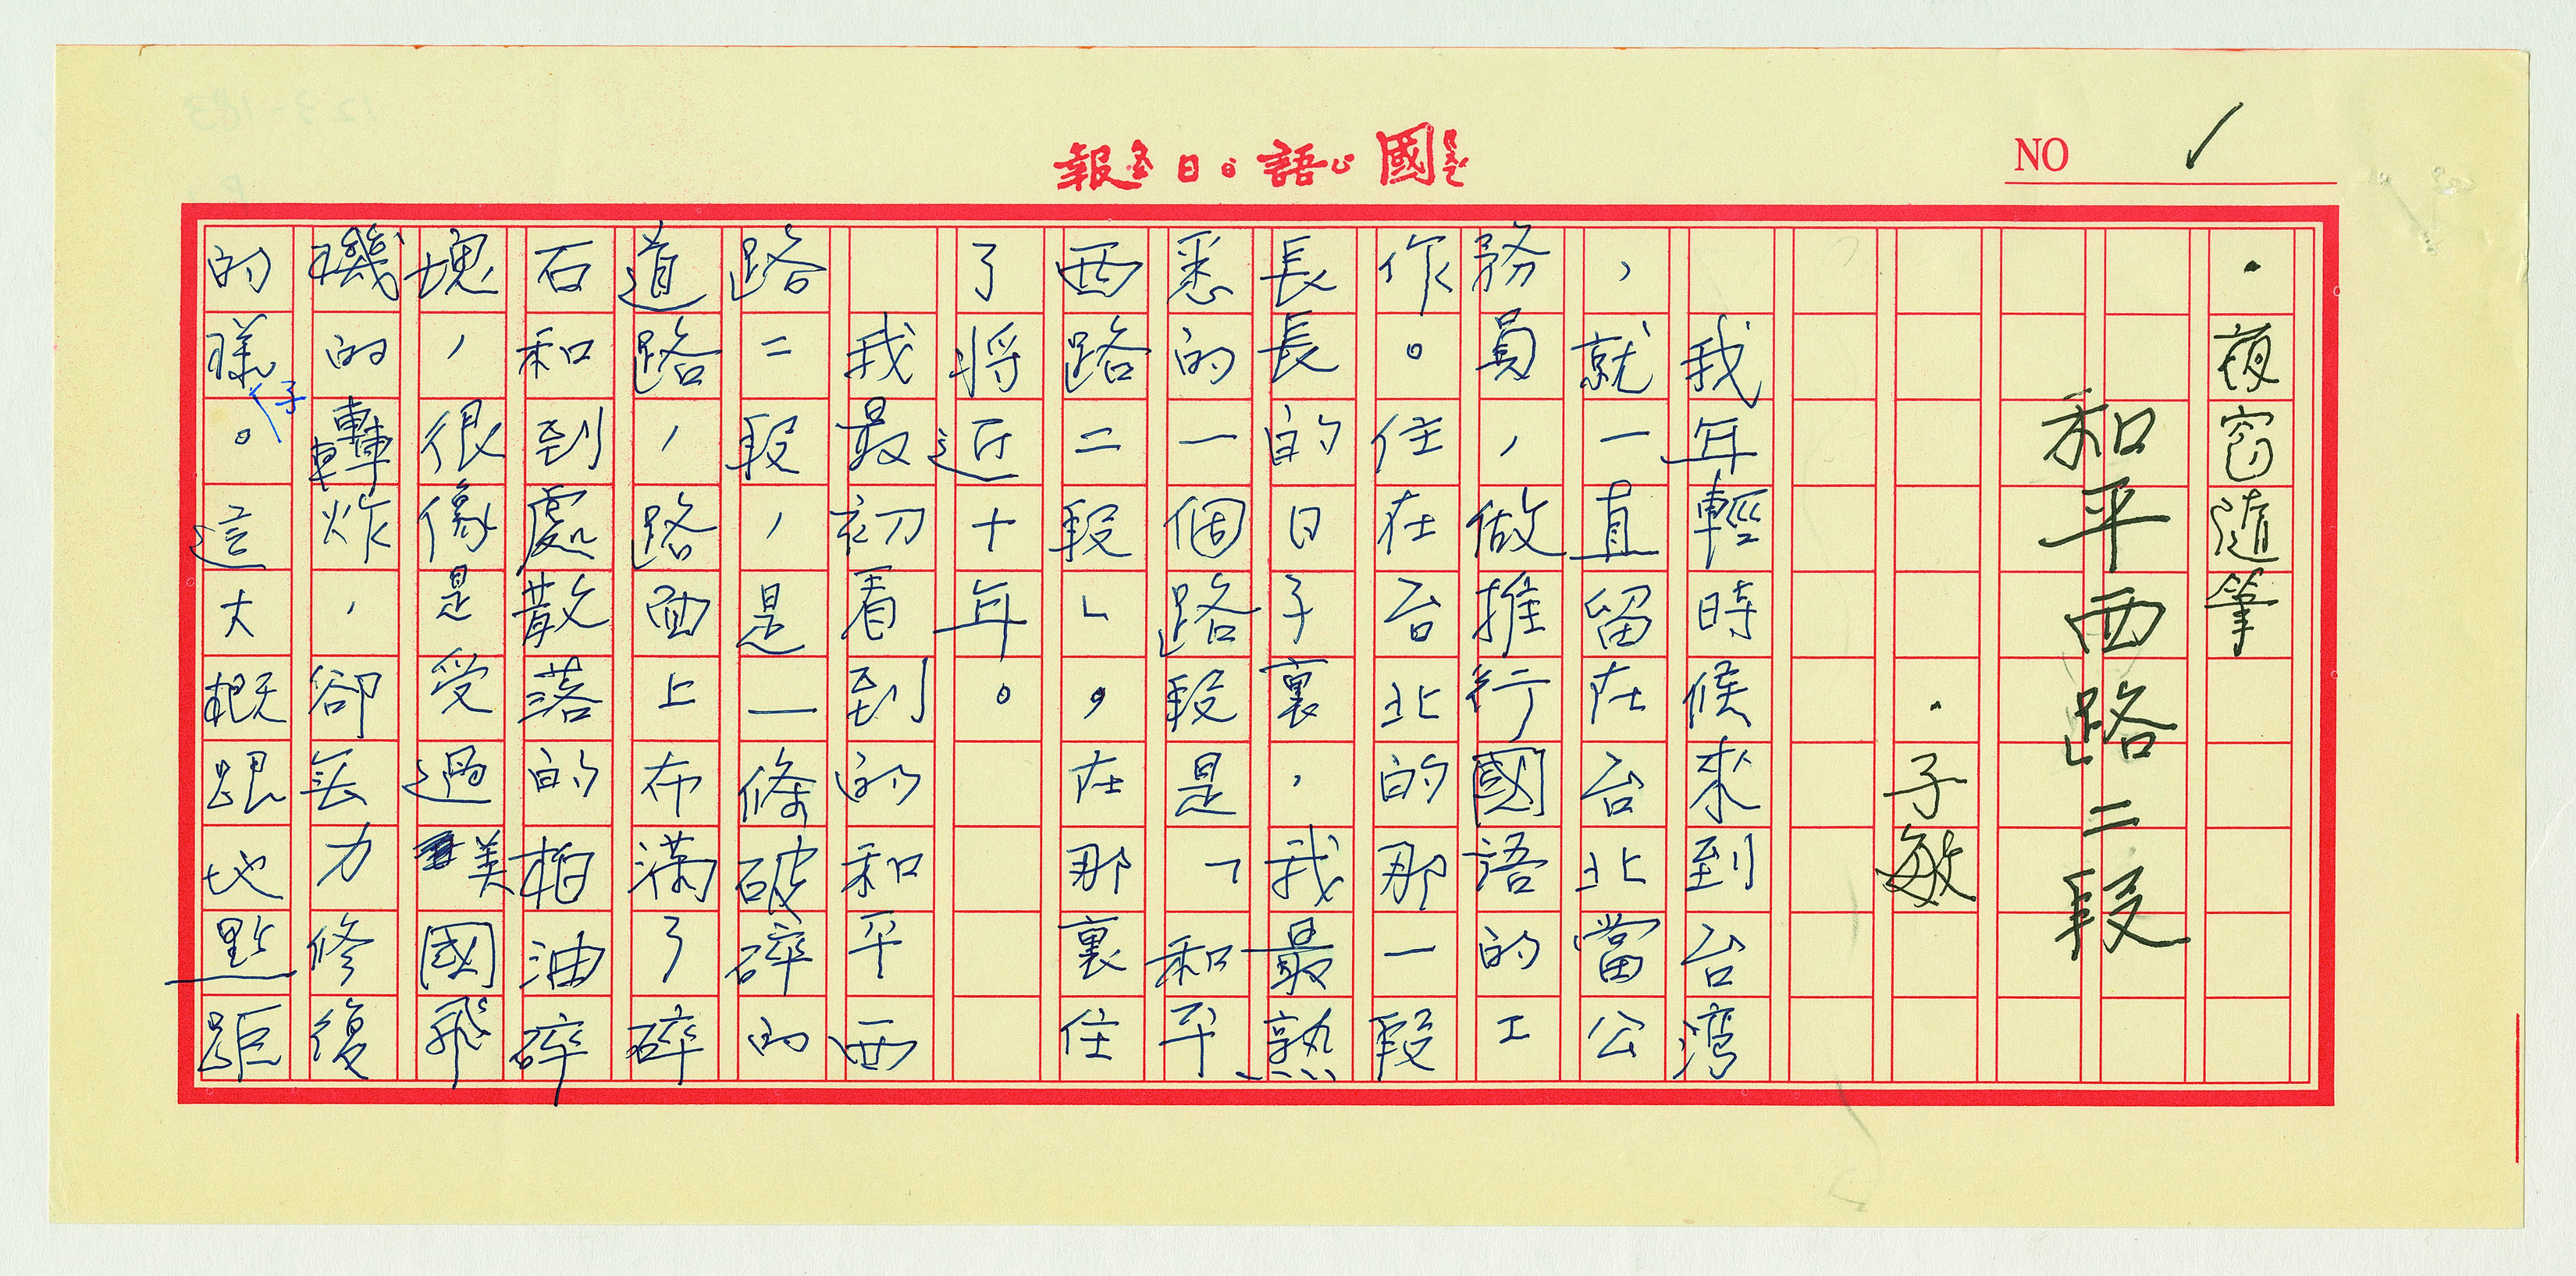 國語日報
NO 1
·夜窗隨筆
和平西路二段
·子敏
我年輕時候來到台灣
，就一直留在台北當公
務員，做推行國語的工
作。住在台北的那一段
長長的日子裏，我最熟
悉的一個路段是「和平
西路二段」，在那裏住
了將近十年。
我最初看到的和平西
路二段，是一條破碎的
道路，路面上布滿了碎
石和到處散落的柏油碎
塊，很像是受過美國飛
機的轟炸，卻無力修復
的樣子。這大概跟地點距